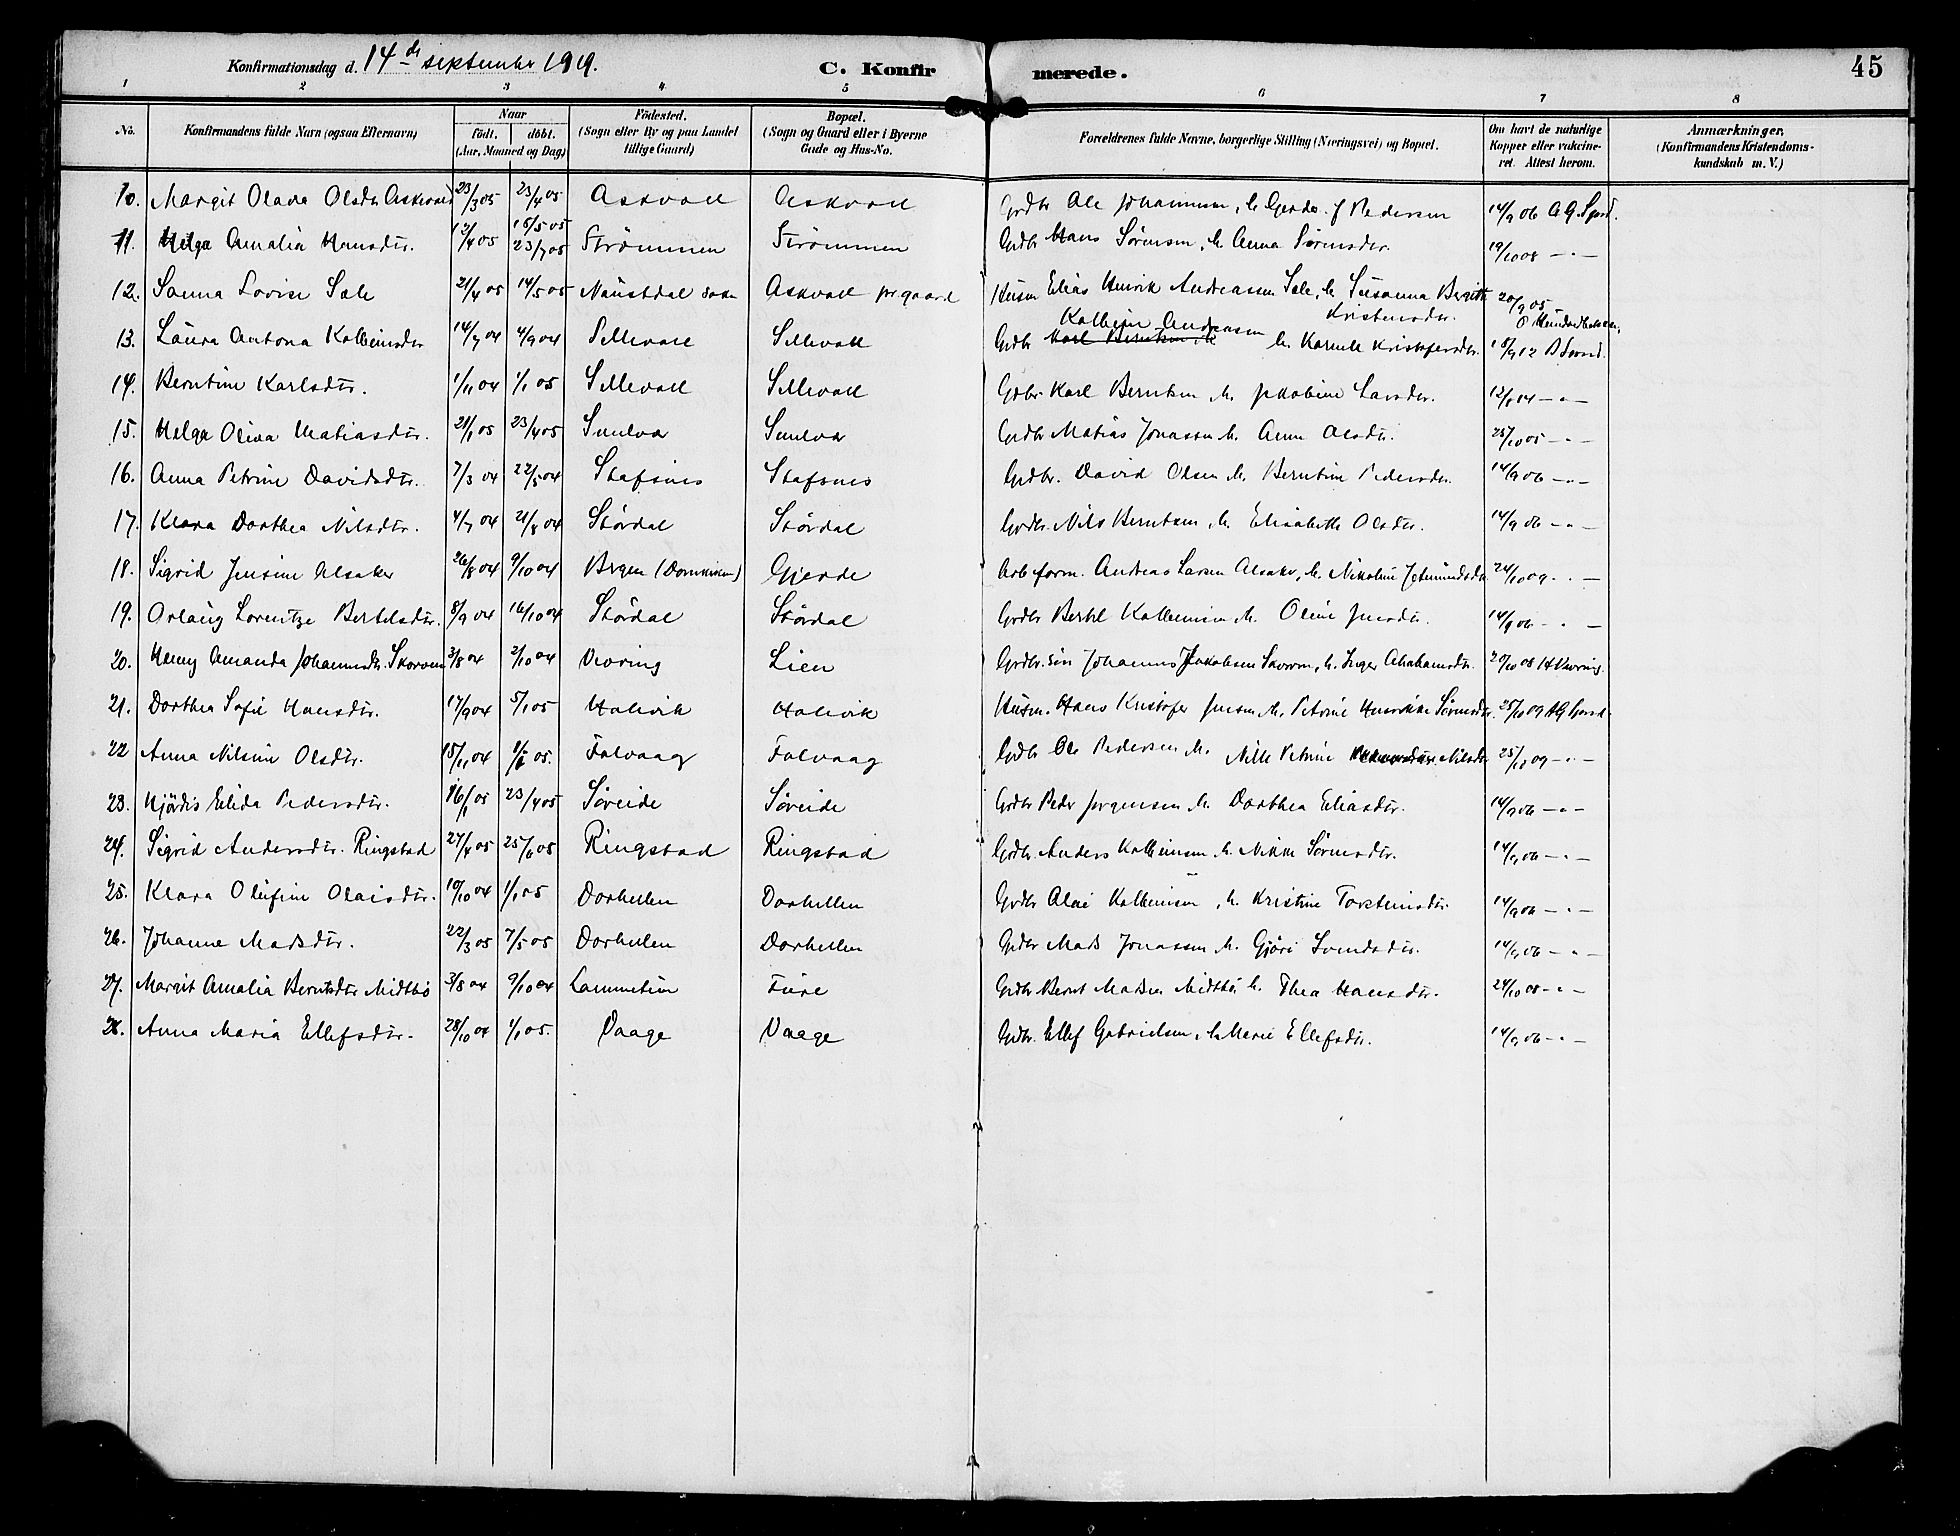 Konfirmationsdag d. 14de september 1919.
C. Konfirmerede.
45
1 2 3 4 5 6 7 8
No. Konfirmandens fulde Navn (ogsaa Efternavn) Naar født. døbt. (Aar, Maaned og Dag) Fødested. (Sogn eller By og paa Landet tillige Gaard) Bopæl. (Sogn og Gaard eller i Byerne Gade og Hus-No. Forældrenes fulde Navne, borgerlige Stilling (Næringsvei) og Bopæl. Om havt de naturlige Kopper eller vakcineret. Attest herom. Anmærkninger, (Konfirmandens Kristendomskundskab m. V.)
10. Margit Olava Olsdtr Askvoll 23/3 05 23/4 05 Askvoll Askvoll Grdbr Ole Johannesen, h. Gjerdr. f Pedersen 14/9 06
11. Helga Amalia Hansdtr. 12/4 05 15/5 05 23/7 05 Strømmen Strømmen Grdbr Hans Sørensen, h. Anna Sørensdtr. 19/10 08 -"-
12. Sanna Lovise Sale 21/4 05 14/5 05 Naustdal sokn Askvoll prgaard Husm Elias Henrik Andreassen Sale, h. Susanna Bergitte Kristensdtr. 20/9 05
13. Laura Antona Kolbeinsdtr 14/7 04 4/9 04 Sellevoll Sellevoll Grdbr Karl Berntsen h. Kolbein Andreasen h. Karnele Kristofersdtr. 18/9 12
14. Berntine Karlsdtr. 1/11 04 1/1 05 Sellevoll Sellevoll Grdbr. Karl Berntsen h. Jakobine Larsdtr. 12/8 14 -"-
15. Helga Oliva Matiasdtr. 21/1 05 23/4 05 Smelvær Smelvær Grdbr Matias Jonassen h. Anne Olsdtr. 25/10 05 -"-
16. Anna Petrine Davidsdtr. 7/3 04 22/5 04 Stafsnes Stafsnes Grdbr. David Olsen h. Berntine Pedersdtr. 14/9 06 -"-
17. Klara Dorthea Nilsdtr. 4/7 04 21/8 04 Størdal Størdal Grdbr. Nils Berntsen, h. Elisabeth Olsdtr. 14/9 06 -"-
18. Sigrid Jensine Alsaker 26/8 04 9/10 04 Bergen (Domkirken) Gjerde Arb.form. Andreas Larsen Alsaker, h. Nikoline Jetmundsdtr 24/10 09 -"-
19. Orlaug Lorentze Bertelsdtr. 8/9 04 16/10 04 Størdal Størdal Grdbr Bertel Kolbeinsen h. Oline Jensdtr. 14/9 06 -"-
20. Henny Amanda Johannesdtr. Skorven 3/8 04 2/10 04 Vevring Lien Grdbr. søn Johannes Jakobsen Skorven, h. Inger Abrahamsdtr. 20/10 08
21. Dorthea Sofie Hansdtr. 17/9 04 5/1 05 Holevik Holevik Husm. Hans Kristofer Jensen h. Petrine Henrikke Sørensdtr. 25/10 09
22 Anna Nilsine Olsdtr. 15/11 04 1/1 05. Folvaag Folvaag Grdbr Ole Pedersen h. Nille Petrine Nilsdtr 25/10 09 -"-
23. Hjørdis Elida Pedersdtr. 16/1 05 23/4 05 Søreide Søreide Grdbr Peder Jørgensen h. Dorthea Eliasdtr. 14/9 06 -"-
24. Sigrid Andersdtr. Ringstad 27/4 05 25/6 05 Ringstad Ringstad Grdbr. Anders Kolbeinsen h. Nikka Sørensdtr. 14/9 06 -"-
25. Klara Olufine Olaisdtr. 10/10 04 1/1 05 Dorhellen Dorhellen Grdbr Olai Kolbeinsen, h. Kristine Torsteinsdtr. 14/9 06 -"-
26. Johanne Madsdtr. 22/3 05 7/5 05 Dorhellen Dorhellen Grdbr Mads Jonassen h. Gjøri Svendsdtr. 14/9 06 -"-
27. Margit Amalia Berntsdtr Midtbø 3/8 04 9/10 04 Lammetun Fure Grdbr Bernt Madsen Midtbø h. Thea Hansdtr. 24/10 08 -"-
28. Anna Maria Ellefsdtr. 28/10 04 1/1 05. Vaage Vaage Grdbr. Ellef Gabrielsen, h. Marie Ellefsdtr. 14/9 06 -"-